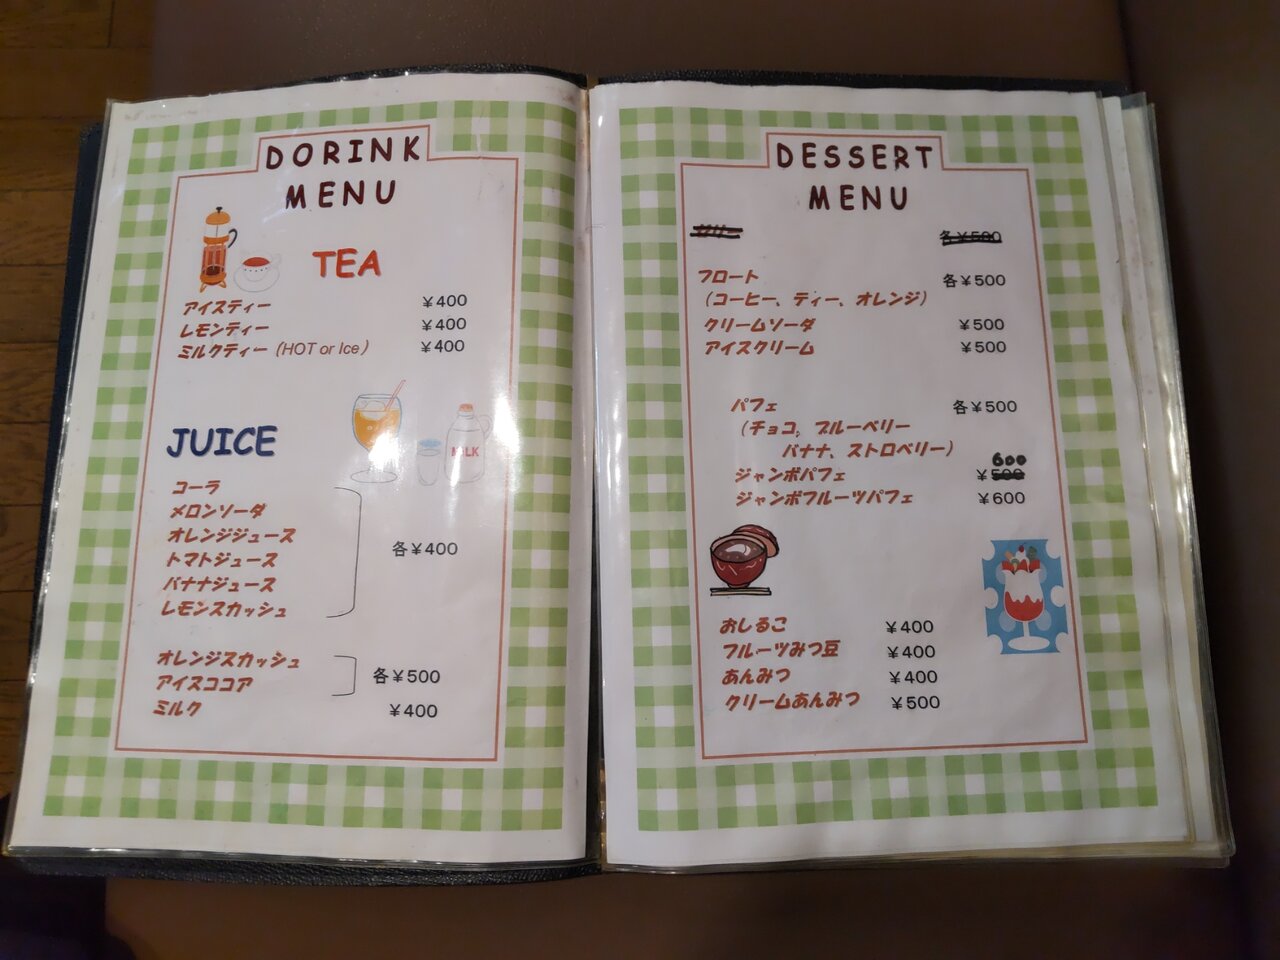 DORINK
MENU
TEA
アイスティー ¥400
レモンティー ¥400
ミルクティー（HOT or Ice） ¥400
JUICE
MiLK
コーラ
メロンソーダ
オレンジジュース
トマトジュース
バナナジュース
レモンスカッシュ
各¥400
オレンジスカッシュ
アイスココア
各¥500
ミルク ¥400
DESSERT
MENU
各¥500
フロート 各¥500
（コーヒー、ティー、オレンジ）
クリームソーダ ¥500
アイスクリーム ¥500
パフェ 各¥500
（チョコ、ブルーベリー
バナナ、ストロベリー）
600
ジャンボパフェ ¥500
ジャンボフルーツパフェ ¥600
おしるこ ¥400
フルーツみつ豆 ¥400
あんみつ ¥400
クリームあんみつ ¥500